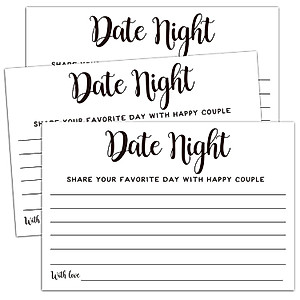 Date Night
SHARE YOUR
Date Night
SHARE YOUR FAVORITE DAY WITH HAPPY COUPLE
Date Night
SHARE YOUR FAVORITE DAY WITH HAPPY COUPLE
With love